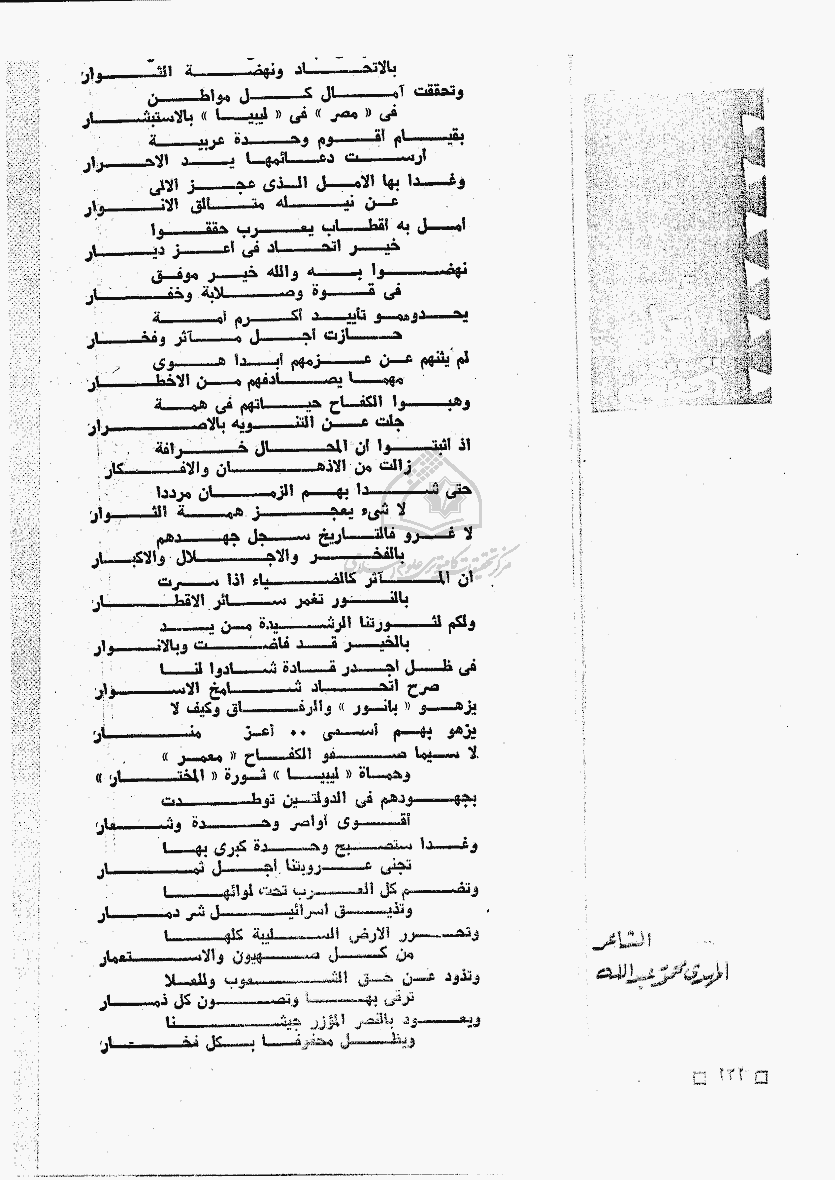 بالاتحاد ونهضة الثوار
وتحققت آمال كل مواطن
فى « مصر » فى « ليبيا » بالاستبشار
بقيام أقوم وحدة عربية
أرست دعائمها يد الاحرار
وغدا بها الامل الذى عجز الالى
عن نيله متألق الانوار
أمل به أقطاب يعرب حققوا
خير اتحاد فى أعز ديار
نهضوا به والله خير موفق
فى قوة وصلابة وخفار
يحدوهمو تأييد أكرم أمة
حازت أجل مآثر وفخار
لم يثنهم عن عزمهم أبدا هوى
مهما يصادفهم من الاخطار
وهبوا الكفاح حياتهم فى همة
جلت عن التنويه بالاصرار
اذ اثبتوا أن المحال خرافة
زالت من الاذهان والافكار
حتى شدا بهم الزمان مرددا
لا شىء يعجز همة الثوار
لا غرو فالتاريخ سجل جهدهم
بالفخر والاجلال والاكبار
ان المآثر كالضياء اذا سرت
بالنور تغمر سائر الاقطار
ولكم لثورتنا الرشيدة من يد
بالخير قد فاضت وبالانوار
فى ظل أجدر قادة شادوا لنا
صرح اتحاد شامخ الاسوار
يزهو « بانور » والرفاق وكيف لا
يزهو بهم أسمى ٠٠ أعز منار
لا سيما صفو الكفاح « معمر »
وحماة « ليبيا » ثورة « المختار »
بجهودهم فى الدولتين توطدت
أقوى أواصر وحدة وشعار
وغدا ستصبح وحدة كبرى بها
تجنى عروبتنا أجل ثمار
وتضم كل العرب تحت لوائها
وتذيق اسرائيل شر دمار
وتحرر الارض السليبة كلها
من كل صهيون والاستعمار
وتذود عن حق الشعوب وللعلا
ترقى بها وتصون كل ذمار
ويعود بالنصر المؤزر جيشنا
ويظل محفوفا بكل فخار
الشاعر
المهدى محمود عبد الله
مركز تحقيقات كامپيوترى علوم اسلامى